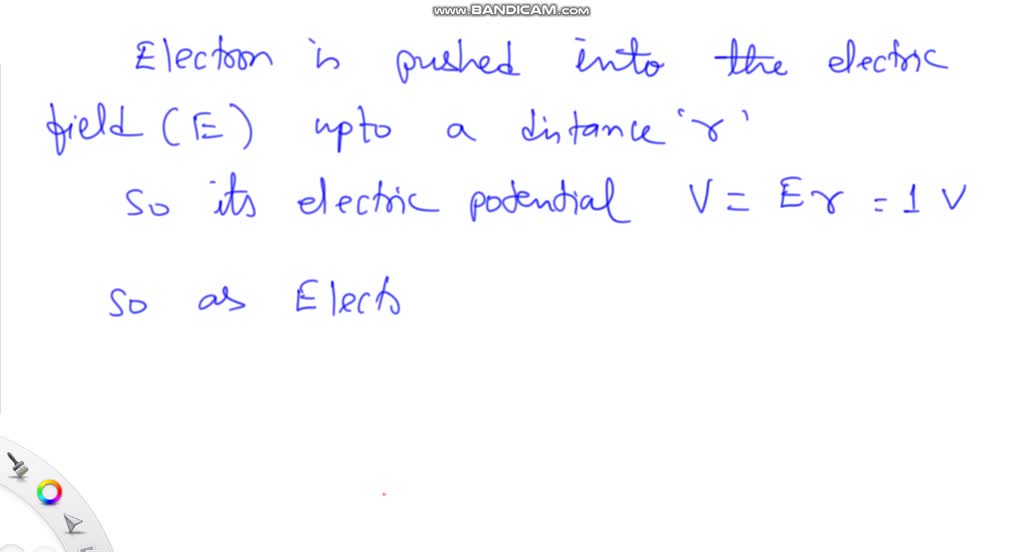 www.BANDICAM.com
Electron is pushed into the electric
field (E) upto a distance 'r'
So its electric potential V = Er = 1 V
So as Electr